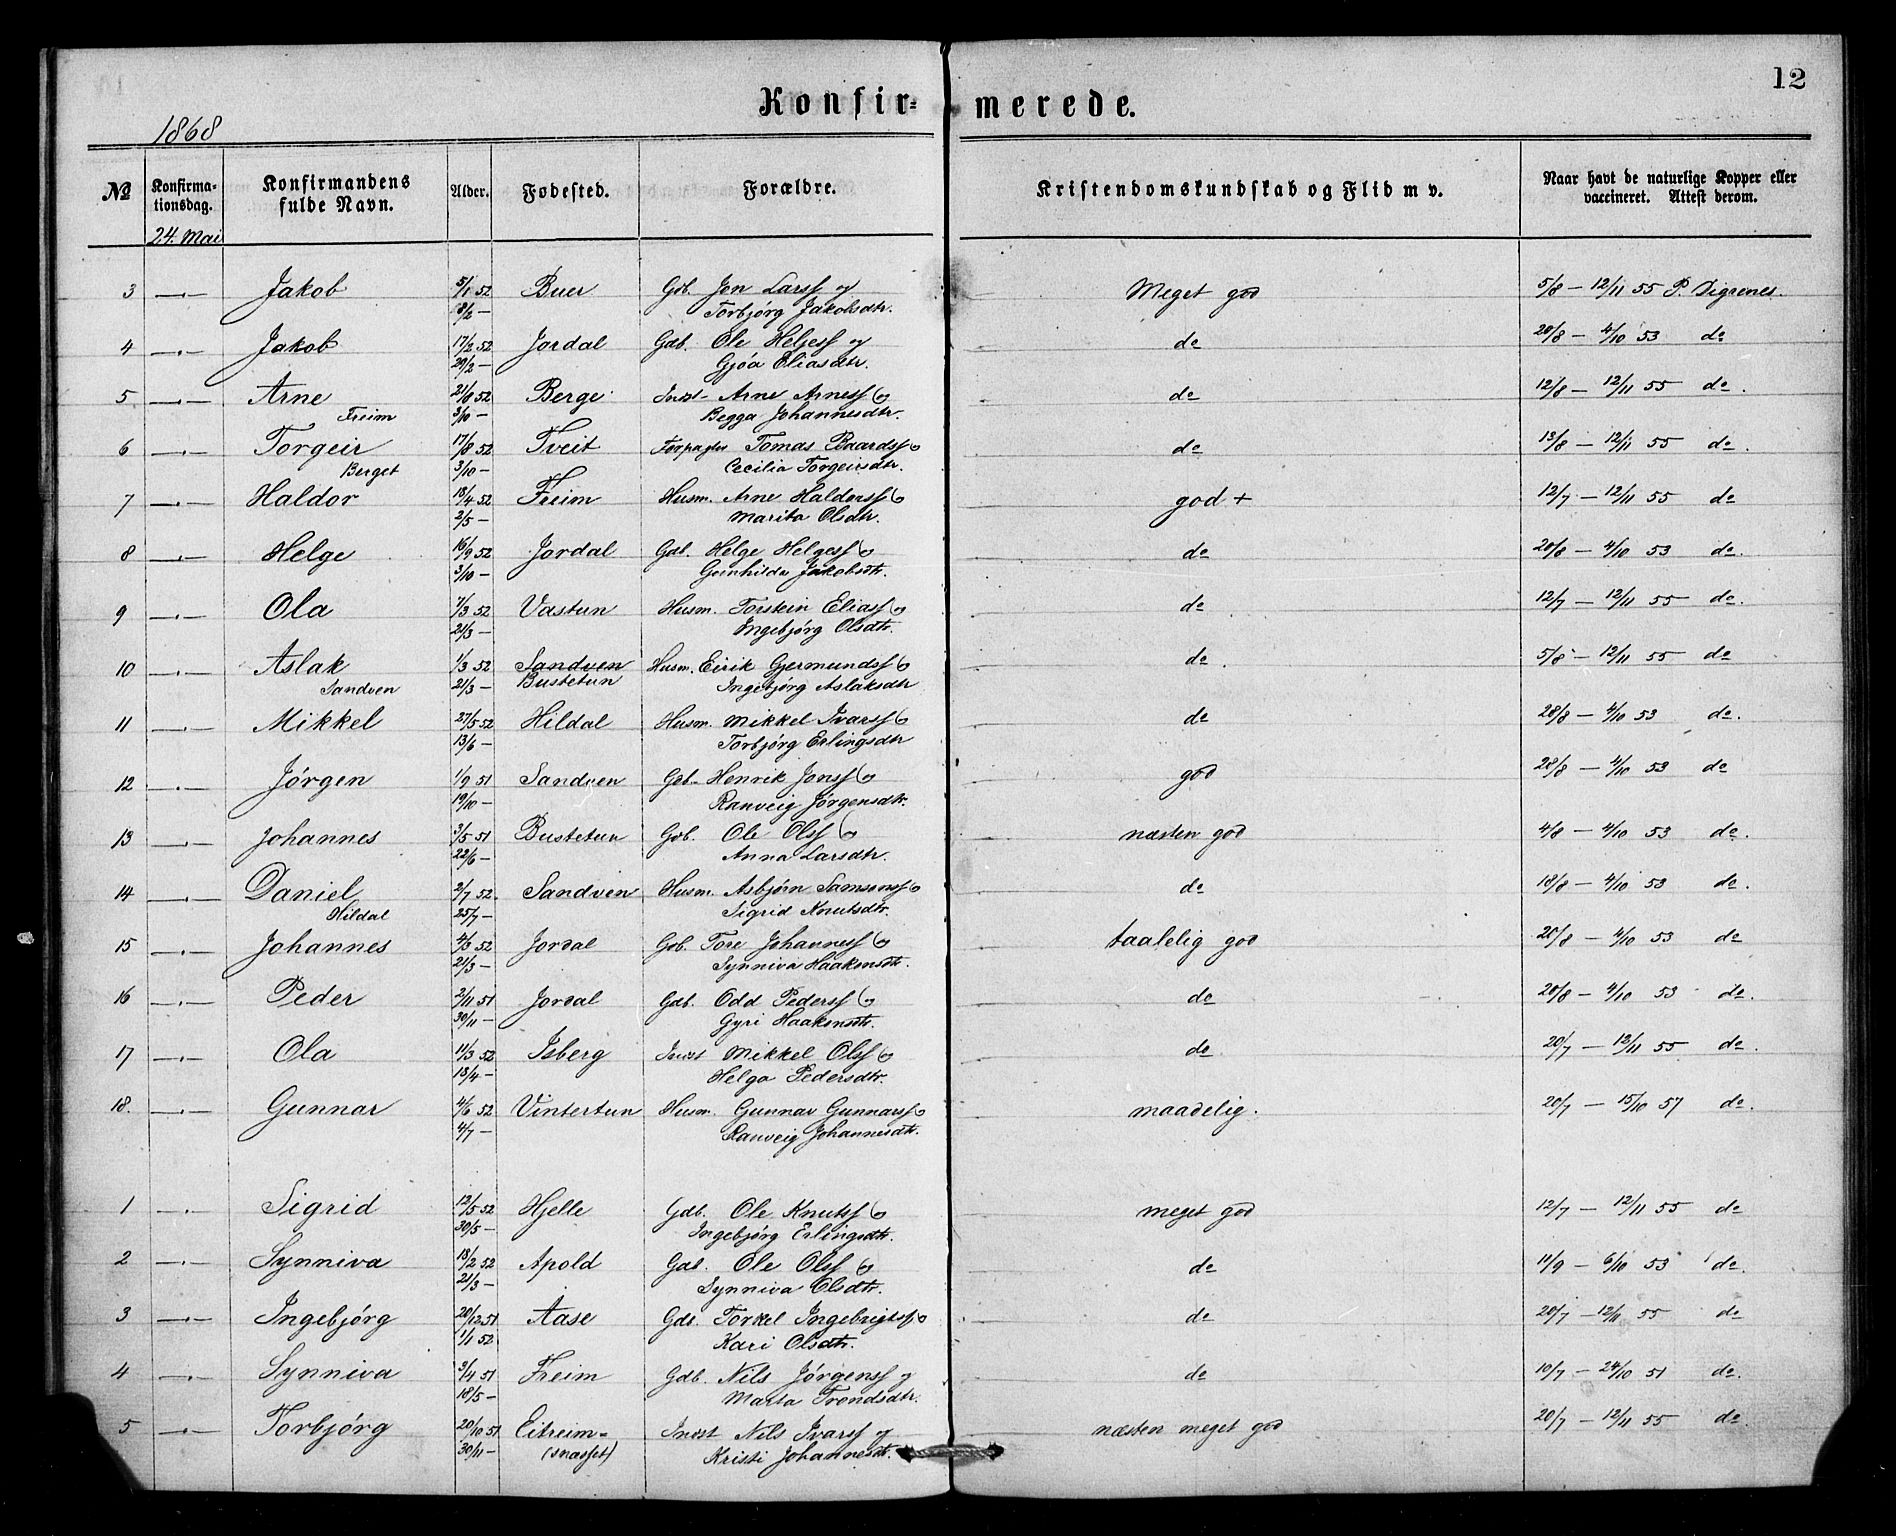 12
Konfir- merede.
1868
№ Konfirmationsdag. Konfirmandens fulde Navn. Alder. Fødested. Forældre. Kristendomskundskab og Flid m v. Naar havt de naturlige Kopper eller vaccineret. Attest derom.
24. Mai
3 —"— Jakob 5/1 52 Buer Gdb. Jon Larss og Meget god 5/8 – 12/11 55 P. Digrenes.
8/2 – Torbjörg Jakobsdtr.
4 —"— Jakob 17/2 52 Jordal Gdb. Ole Helgess og do 20/8 – 4/10 53 do
29/2 – Gjöa Eliasdtr.
5 —"— Arne 21/8 52 Berge Indst – Arne Arness o do 12/8 – 12/11 55 do.
Freim 3/10 – Begga Johannesdtr.
6 —"— Torgeir 17/8 52 Tveit Forpagter Tomas Baardss o do 13/8 – 12/11 55 do.
Berget 3/10 – Cecilia Torgeirsdtr.
7 —"— Haldor 18/4 52 Freim Husm. Arne Haldorss o god + 12/7 – 12/11 55 do
2/5 – Marita Olsdtr.
8 —"— Helge 16/9 52 Jordal Gdb. Helge Helgess o do 20/8 – 4/10 53 do.
3/10 – Gunhilda Jakobsdtr.
9 —"— Ola 7/3 52 Vastun Husm. Torstein Eliass o do 12/7 – 12/11 55 do.
21/3 – Ingebjörg Olsdtr.
10 —"— Aslak 1/3 52 Sandven Husm. Eirik Gjermundss o do. 5/8 – 12/11 55 do
Sandven 21/3 – Bustetun Ingebjörg Aslaksdtr
11 —"— Mikkel 27/5 52 Hildal Husm. Mikkel Ivarss o do 28/8 – 4/10 53 do.
13/6 – Torbjörg Erlingsdtr
12 —"— Jörgen 1/9 51 Sandven Gdb. Henrik Jonss o god 28/8 – 4/10 53 do
19/10 – Ranveig Jörgensdtr.
13 —"— Johannes 3/5 51 Bustetun Gdb. Ole Olss o næsten god 4/8 – 4/10 53 do.
22/6 – Anna Larsdtr.
14 —"— Daniel 2/7 52. Sandven Husm. Asbjörn Samsonss o do 18/8 – 4/10 53 do.
Hildal 25/7 – Sigrid Knutsdtr.
15 —"— Johannes 4/3 52 Jordal Gdb. Tore Johanness o taalelig god 20/8 – 4/10 53 do
21/3 – Synniva Haaknsdtr.
16 —"— Peder 2/11 51 Jordal Gdb. Odd Pederss o do 20/8 – 4/10 53 do.
30/11 – Gyri Haaknsdtr.
17 —"— Ola 11/3 52 Isberg Indst Mikkel Olss o do 20/7 – 12/11 55 do.
13/4 – Helga Pedersdtr.
18. —"— Gunnar 4/6 52 Vintertun Husm. Gunnar Gunnarss o maadelig. 20/7 – 15/10 57 do.
4/7 – Ranveig Johannesdtr.
1 —"— Sigrid 12/5 52 Hjelle Gdb. Ole Knutss o meget god 12/7 – 12/11 55 do
30/5 – Ingebjörg Erlingsdtr.
2 —"— Synniva 18/2 52 Apold Gdb. Ole Olss o do 11/9 – 6/10 53 do.
21/3 – Synniva Olsdtr.
3 —"— Ingebjörg 20/12 51 Aase Gdb. Torkel Ingebrigtss o do 20/7 – 12/11 55 do
1/1 52 Kari Olsdtr.
4 —"— Synniva 3/4 51 Freim Gdb. Nils Jörgenss og do 10/7 – 24/10 51 do.
18/5 – Marta Trondsdtr.
5 —"— Torbjörg 20/10 51 Eitreim- Indst Nils Ivarss og næsten meget god 20/7 – 12/11 55 do.
30/11 – Kristi Johannesdtr.